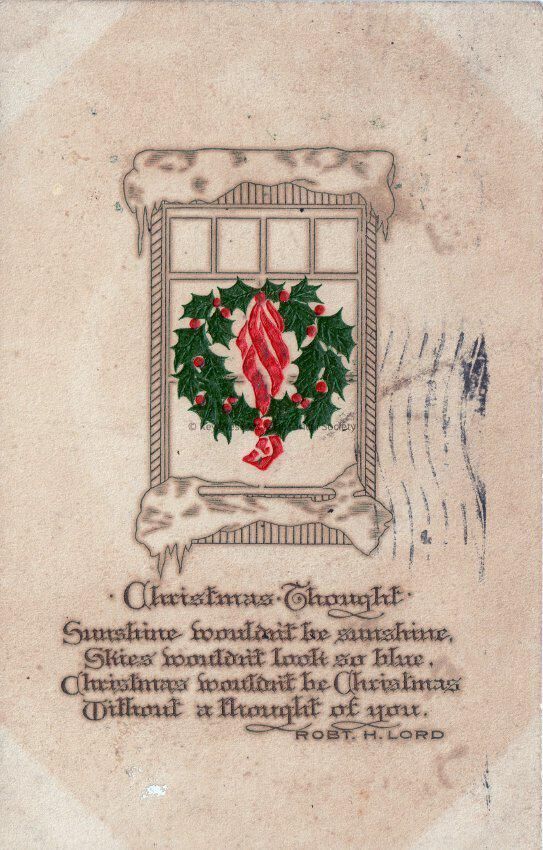 © Society
· Christmas · Thought ·
Sunshine wouldn't be sunshine,
Skies wouldn't look so blue,
Christmas wouldn't be Christmas
Without a thought of you.
ROBT. H. LORD